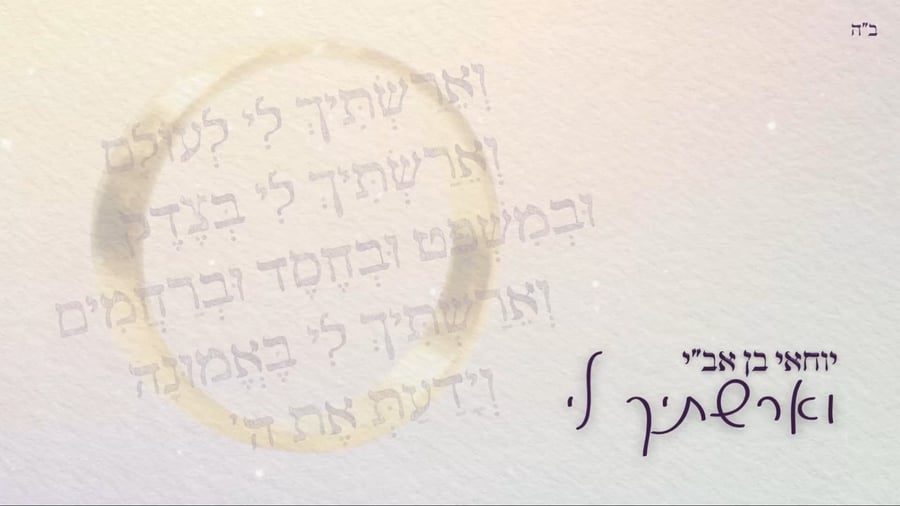 ב"ה
וְאֵרַשְׂתִּיךְ לִי לְעוֹלָם
וְאֵרַשְׂתִּיךְ לִי בְּצֶדֶק
וּבְמִשְׁפָּט וּבְחֶסֶד וּבְרַחֲמִים
וְאֵרַשְׂתִּיךְ לִי בֶּאֱמוּנָה
וְיָדַעַתְּ אֶת ה'
יוחאי בן אב"י
וארשתיך לי